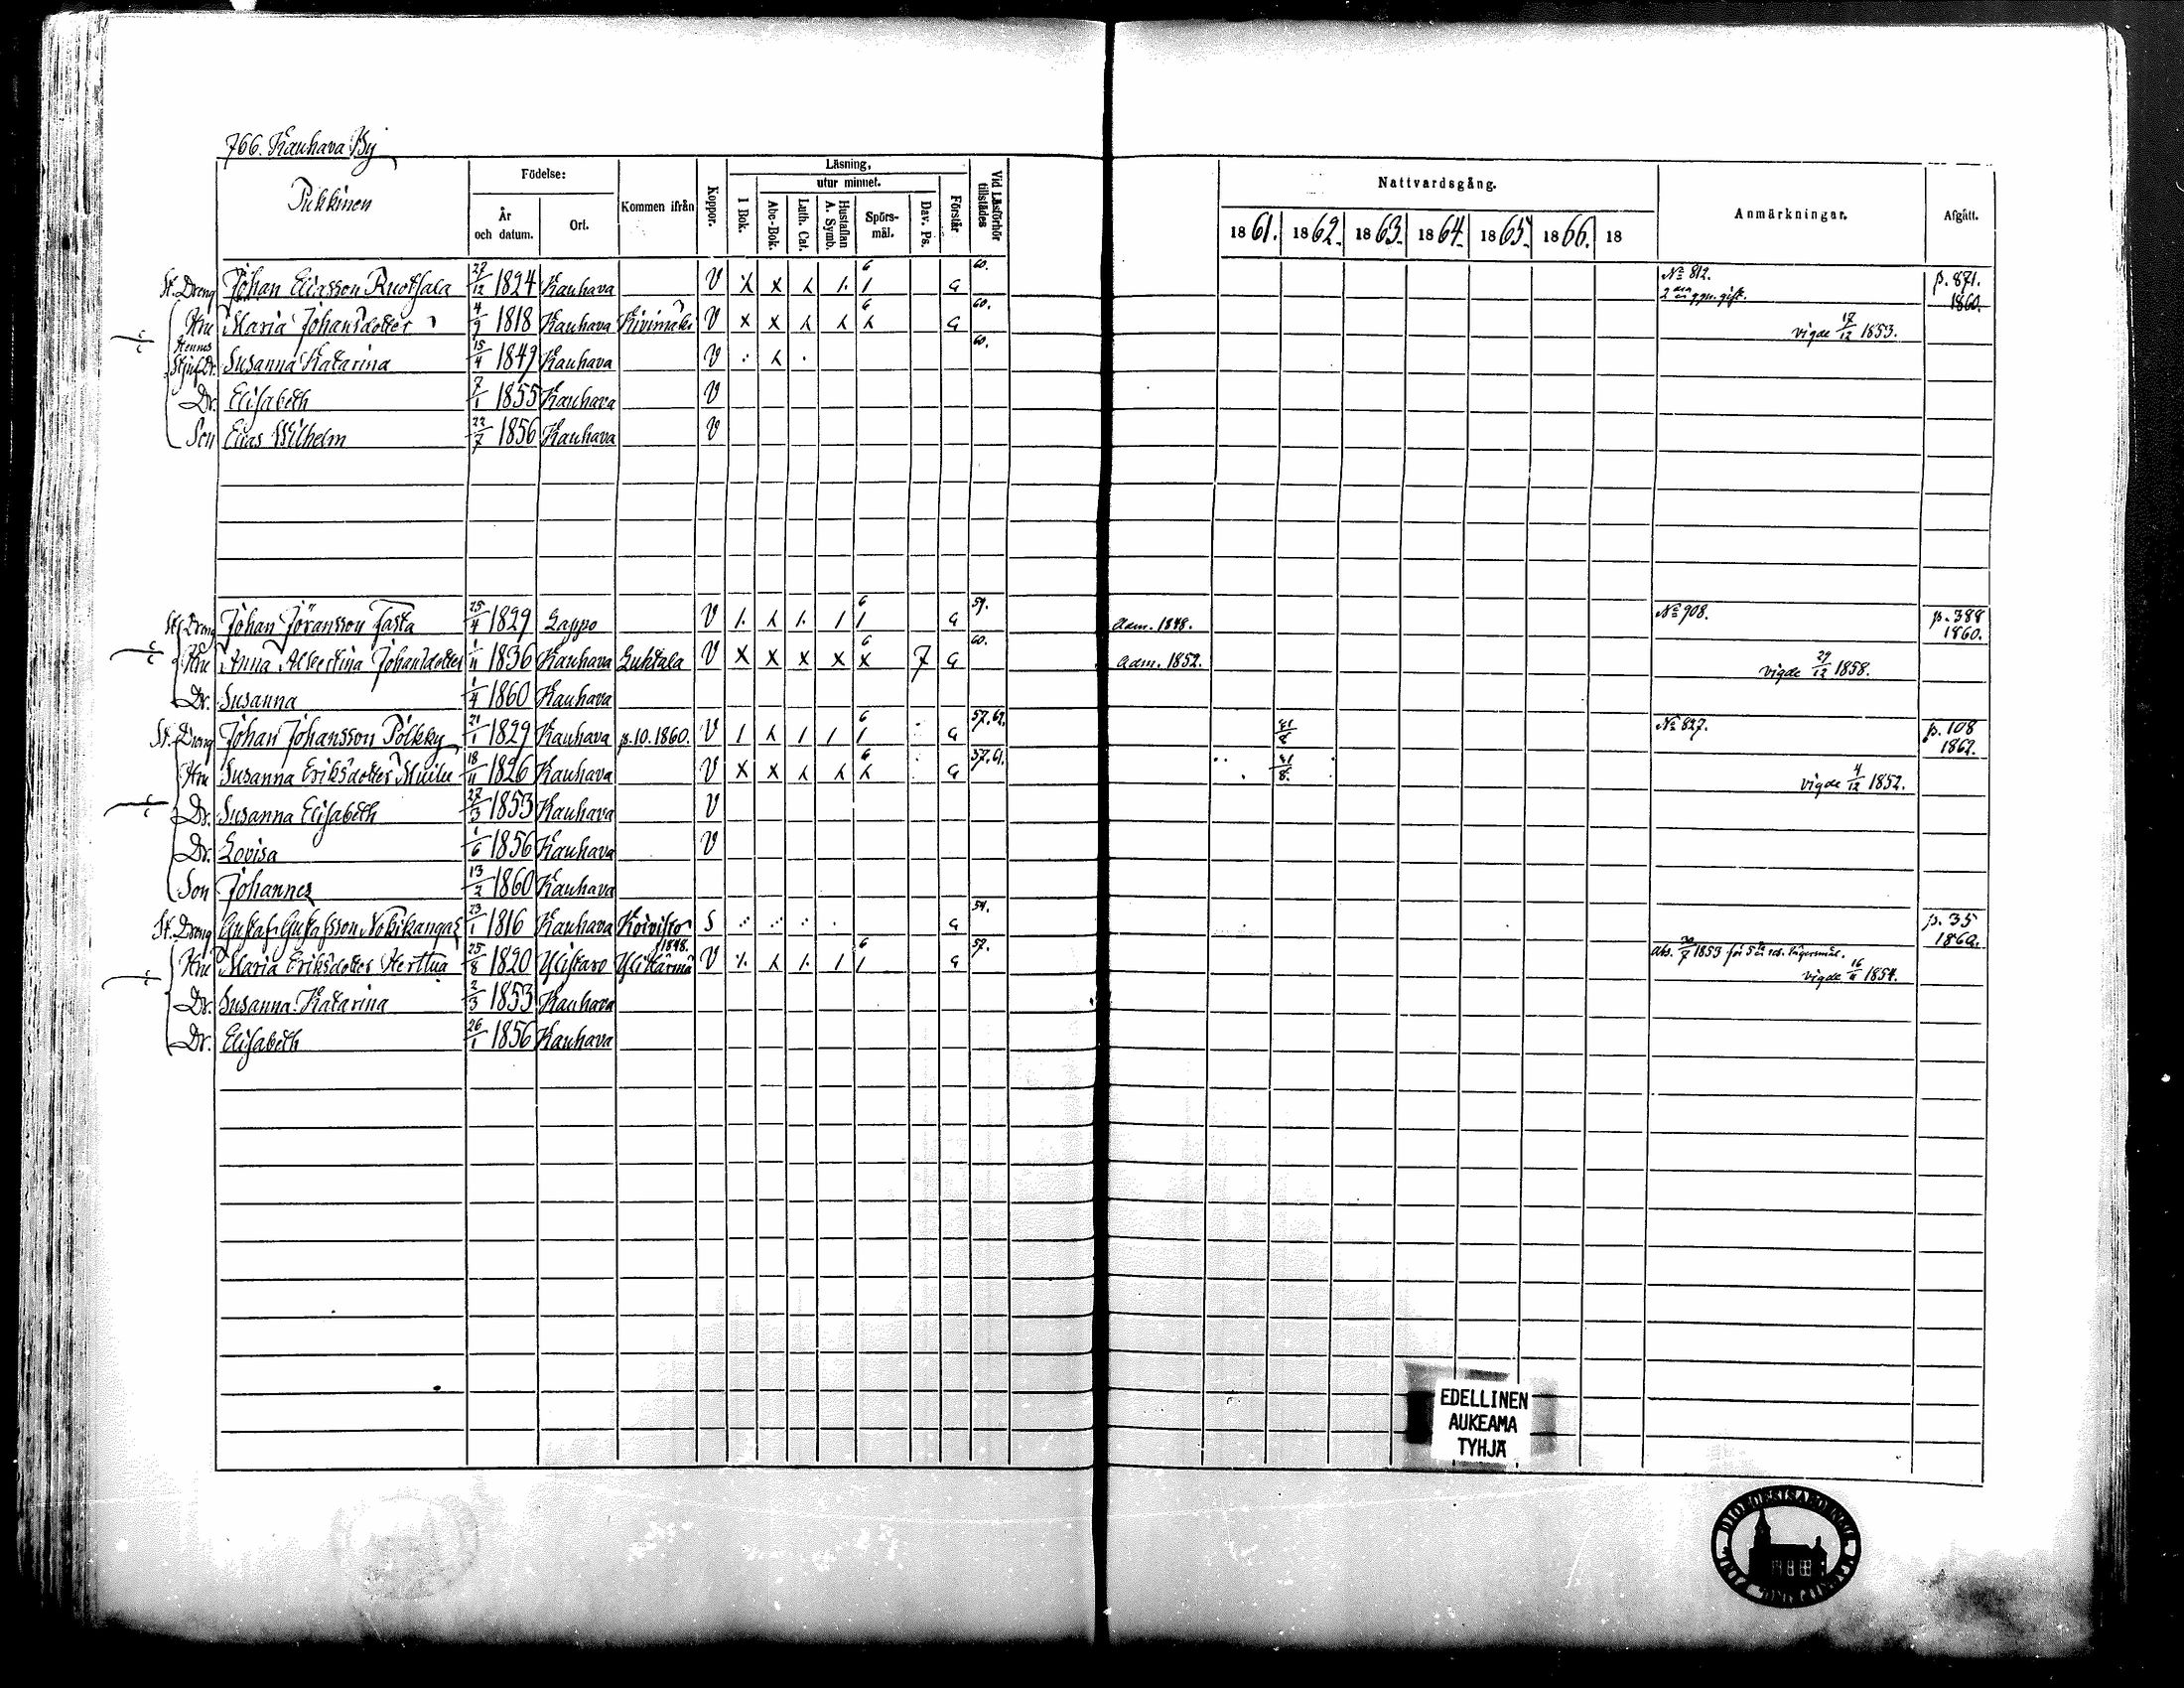 766. Kauhava By
Pukkinen
Födelse:
År och datum.
Ort.
Kommen ifrån
Koppor.
Läsning,
utur minnet.
I Bok.
Abc-Bok.
Luth. Cat.
Hustaflan A. Symb.
Spörsmål.
Dav. Ps.
Förstår
Vid Läsförhör tillstädes
Nattvardsgång.
1861. 1862. 1863. 1864. 1865. 1866. 18
Anmärkningar.
Afgått.
St. Dreng Johan Eliasson Ruotsala 27/12 1824 Kauhava V X X λ 1. 6 1 G 60. No 812. 2dra ggn. gift. p. 871. 1860.
Hru Maria Johansdotter 4/9 1818 Kauhava Kivimäki V X X λ λ 6 λ G 60. vigde 17/12 1853.
Hennes Styfdr. Susanna Katarina 15/4 1849 Kauhava V 60.
Dr. Elisabeth 7/1 1855 Kauhava V
Son Elias Wilhelm 22/7 1856 Kauhava V
St. Dreng Johan Jöransson Fasta 25/4 1829 Lappo V 1. λ 1. 1 6 1 G 59. Adm. 1848. No 908. p. 388 1860.
Hru Anna Albertina Johansdotter 1/11 1836 Kauhava Luhtala V X X X X 6 X 7 G 60. Adm. 1852. vigde 29/12 1858.
Dr. Susanna 1/4 1860 Kauhava
St. Dreng Johan Johansson Pölkky 21/1 1829 Kauhava p. 10. 1860. V 1 λ 1 1 6 1 G 57. 62. No 827. p. 108 1862.
Hru Susanna Eriksdotter 18/11 1826 Kauhava V X X λ λ 6 λ G 57. 61. vigde 4/12 1852.
Dr. Susanna Elisabeth 27/3 1853 Kauhava V
Dr. Lovisa 1/6 1856 Kauhava V
Son Johannes 13/2 1860 Kauhava
St. Dreng Gustaf Gustafsson Nokikangas 23/1 1816 Kauhava Koivisto S G 54. p. 35 1860.
Hru Maria Eriksdotter Herttua 25/8 1820 Ylistaro Ylihärmä 1848. V λ 1. 1 6 1 G 57. Abs. 30/7 1853 för lägersmål. vigde 16/11 1854.
Dr. Susanna Katarina 2/3 1853 Kauhava
Dr. Elisabeth 26/1 1856 Kauhava
EDELLINEN
AUKEAMA
TYHJÄ